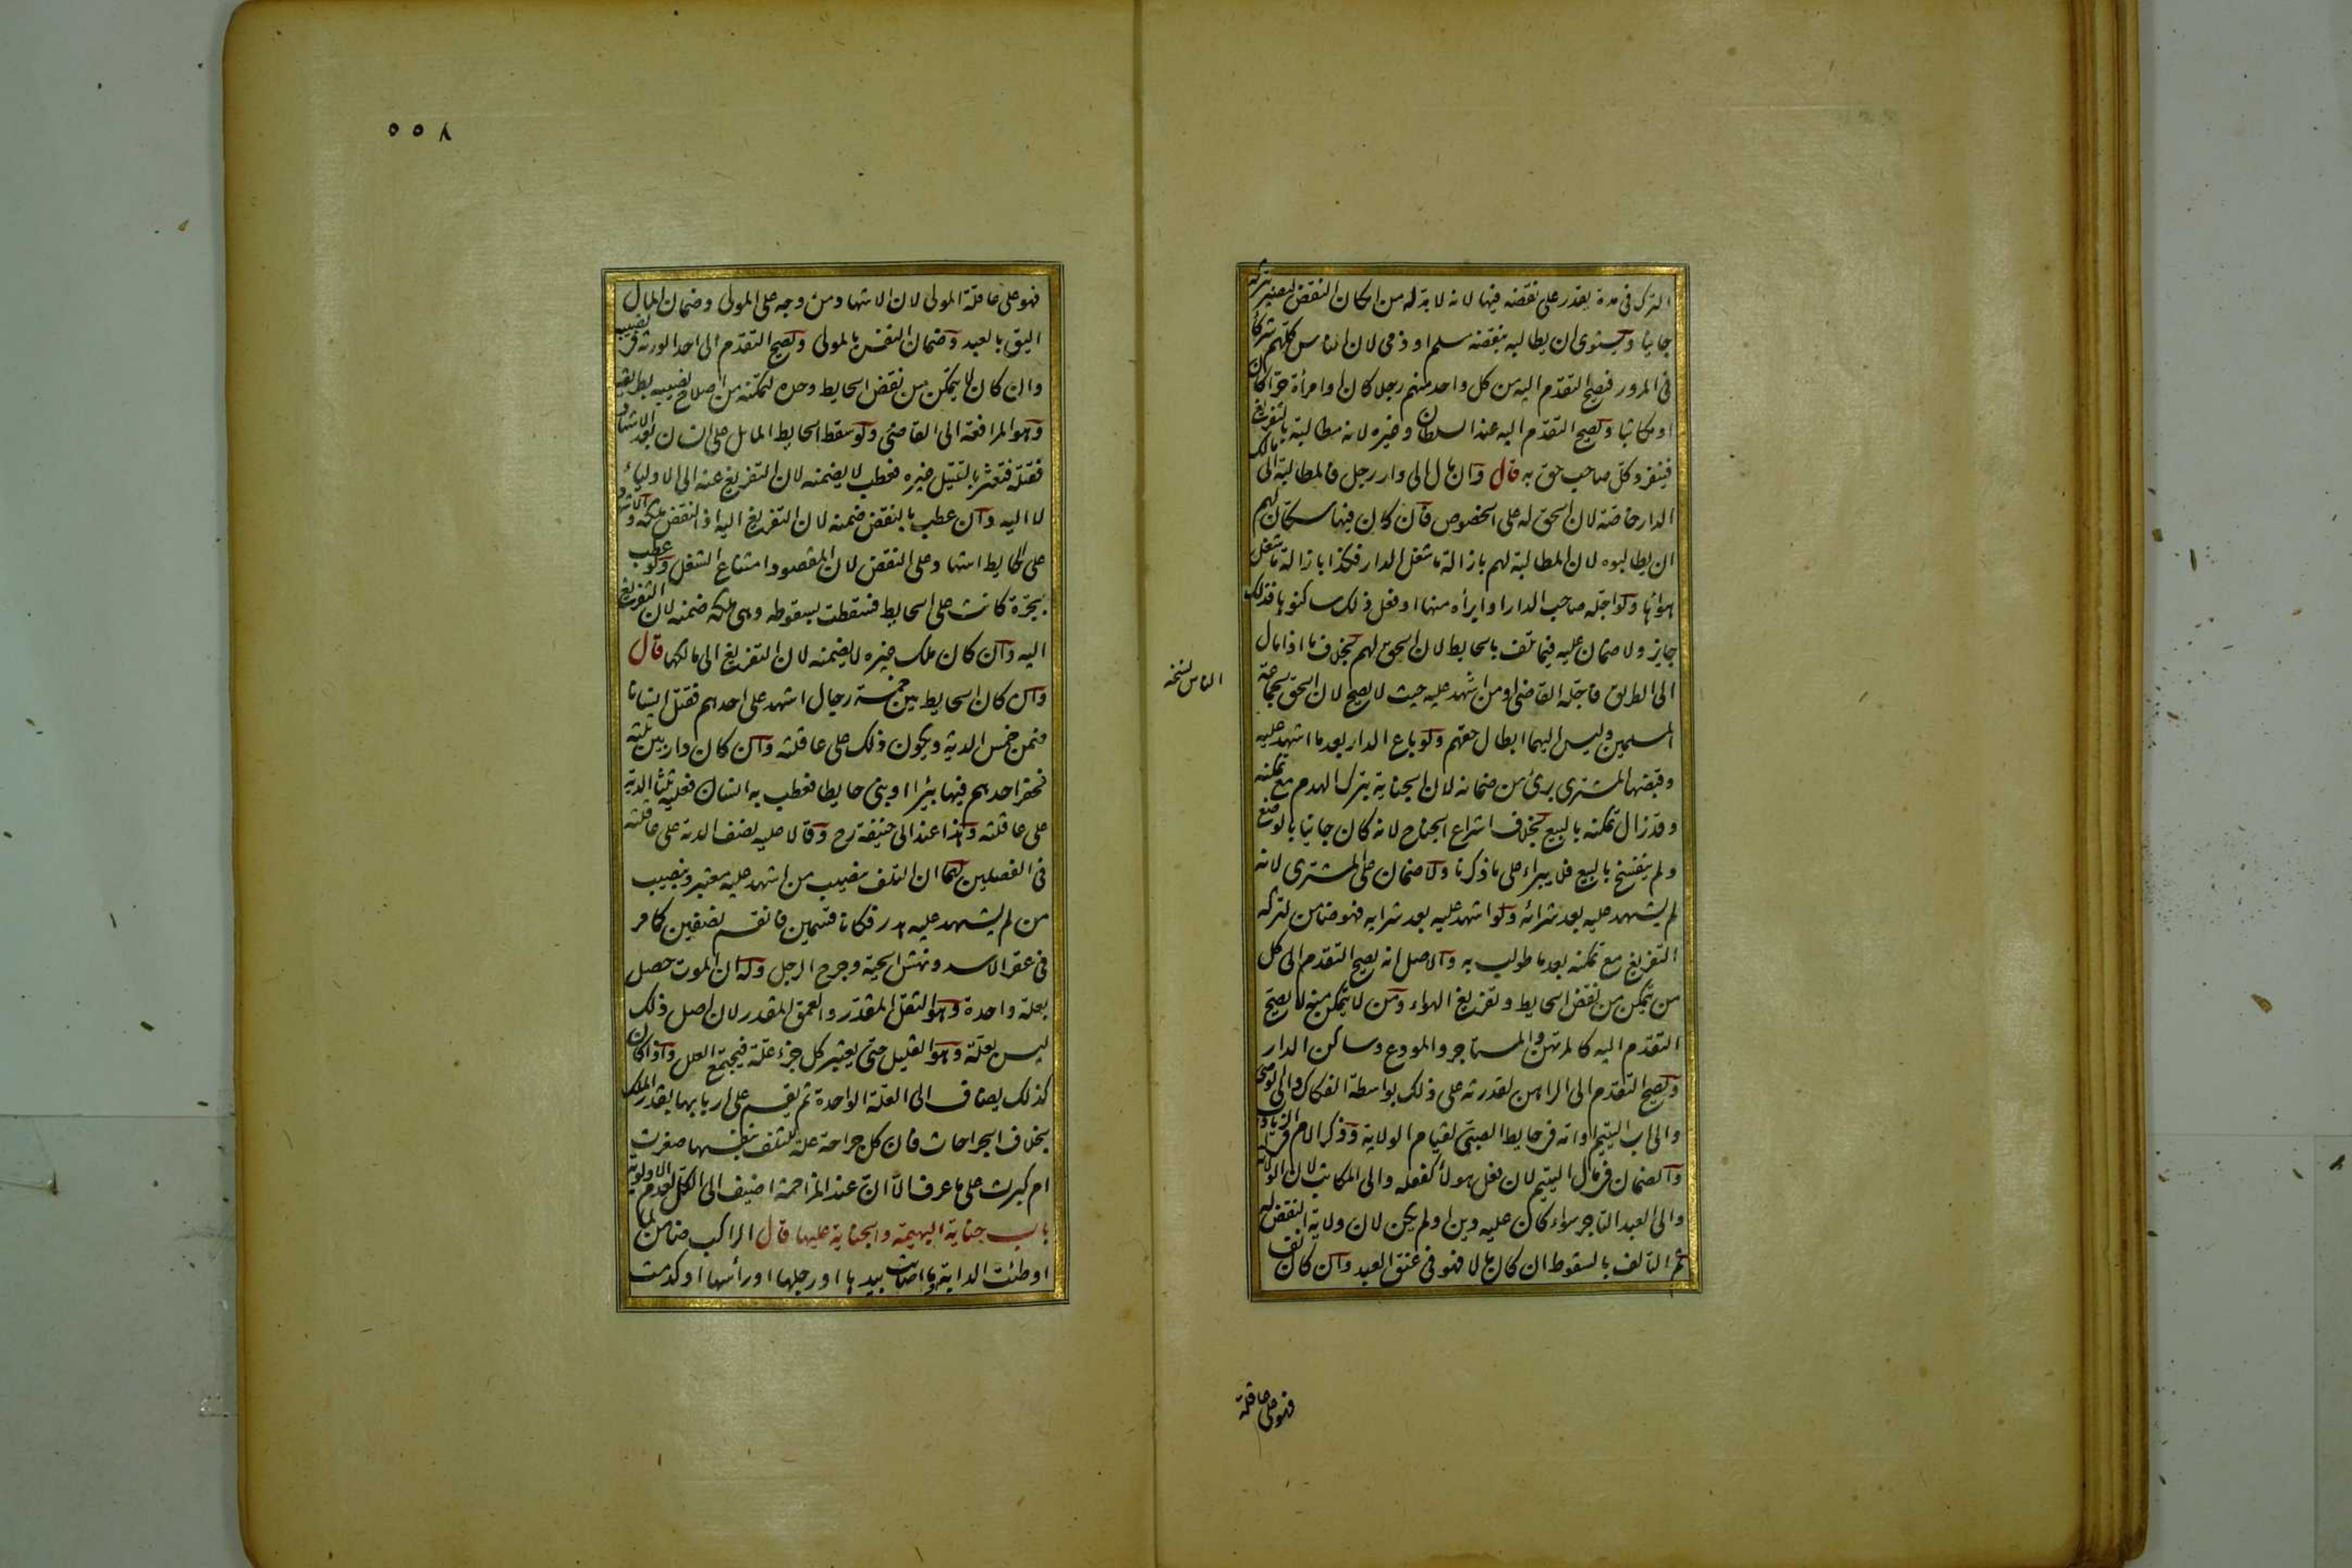 الترك فى مدة يقدر على نقضه فيها لانه لا بد له من امكان النقض ليصير بتركه
جانيا ويستوى ان يطالبه بنقضه مسلم او ذمى لان الناس كلهم شركاء
فى المرور فيصح التقدم اليه من كل واحد منهم رجلا كان او امرأة حرا كان
او مكاتبا ويصح التقدم اليه عند السلطان وغيره لانه مطالبة بالتفريغ
فينفرد كل صاحب حق به قال وان مال الى دار رجل فالمطالبة الى مالك
الدار خاصة لان الحق له على الخصوص فان كان فيها سكان لهم
ان يطالبوه لان المطالبة لهم بازالة ما شغل الدار فكذا بازالة ما شغل
هوائها ولو اجله صاحب الدار او ابرأه منها او فعل ذلك ساكنوها فذلك
جايز ولا ضمان عليه فيما تلف بالحايط لان الحق لهم بخلاف ما اذا مال
الى الطريق فاجله القاضى او من اشهد عليه حيث لا يصح لان الحق لجماعة
المسلمين وليس اليهما ابطال حقهم ولو باع الدار بعد ما اشهد عليه
وقبضها المشترى برئ من ضمانه لان الجناية بترك الهدم مع تمكنه
وقد زال تمكنه بالبيع بخلاف اشراع الجناح لانه كان جانيا بالوضع
ولم ينفسخ بالبيع فلا يبراء على ما ذكرنا ولا ضمان على المشترى لانه
لم يشهد عليه بعد شرائه ولو اشهد عليه بعد شرايه فهو ضامن لتركه
التفريغ مع تمكنه بعد ما طولب به والاصل انه يصح التقدم الى كل
من يتمكن من نقض الحايط وتفريغ الهواء ومن لا يتمكن منه لا يصح
التقدم اليه كالمرتهن والمستاجر والمودع وساكن الدار
ويصح التقدم الى الراهن لقدرته على ذلك بواسطة الفكاك والى الوصى
والى اب اليتيم او امه فى حايط الصبى لقيام الولاية وذكر الام فى الزيادات
والضمان فى مال اليتيم لان فعل هولاء كفعله والى المكاتب لان الولاية له
والى العبد التاجر سواء كان عليه دين او لم يكن لان ولاية النقض له
ثم التالف بالسقوط ان كان مالا فهو فى عنق العبد وان كان نفسا
الناس نسخه
فهو على عاقلة
٥٥٨
فهو على عاقلة المولى لان الاشهاد من وجه على المولى وضمان المال
اليق بالعبد وضمان النفس بالمولى ويصح التقدم الى احد الورثة فى نصيبه
وان كان لا يتمكن من نقض الحايط وحده لتمكنه من اصلاح نصيبه بطريقه
وهو المرافعة الى القاضى ولو سقط الحايط المايل على انسان بعد الاشهاد
فقتله فتعثر بالقتيل غيره فعطب لا يضمنه لان التفريغ عنه الى الاولياء
لا اليه وان عطب بالنقض ضمنه لان التفريغ اليه اذ النقض ملكه والاشهاد
على الحايط اشهاد على النقض لان المقصود امتناع الشغل ولو عطب
بجرة كانت على الحايط فسقطت بسقوطه وهى ملكه ضمنه لان التفريغ
اليه وان كان ملك غيره لا يضمنه لان التفريغ الى مالكها قال
وان كان الحايط بين خمسة رجال اشهد على احدهم فقتل انسانا
ضمن خمس الدية ويكون ذلك على عاقلته وان كان دار بين ثلثة
فحفر احدهم فيها بيرا او بنى حايطا فعطب به انسان فعليه ثلثا الدية
على عاقلته وهذا عند ابى حنيفة رح وقالا عليه نصف الدية على عاقلته
فى الفصلين لهما ان التلف بنصيب من اشهد عليه معتبر وبنصيب
من لم يشهد عليه هدر فكانا قسمين فانقسم نصفين كما مر
فى عقر الاسد ونهش الحية وجرح الرجل وله ان الموت حصل
بعلة واحدة وهو الثقل المقدر والعمق المقدر لان اصل ذلك
ليس بعلة وهو القليل حتى يعتبر كل جزء علة فيجتمع العلل واذا كان
كذلك يضاف الى العلة الواحدة ثم يقسم على اربابها بقدر الملك
بخلاف الجراحات فان كل جراحة علة للتلف بنفسها صغرت
ام كبرت على ما عرف الا ان عند المزاحمة اضيف الى الكل لعدم الاولوية
باب جناية البهيمة والجناية عليها قال الراكب ضامن لما
اوطئت الدابة ما اصابت بيدها او رجلها او رأسها او كدمت